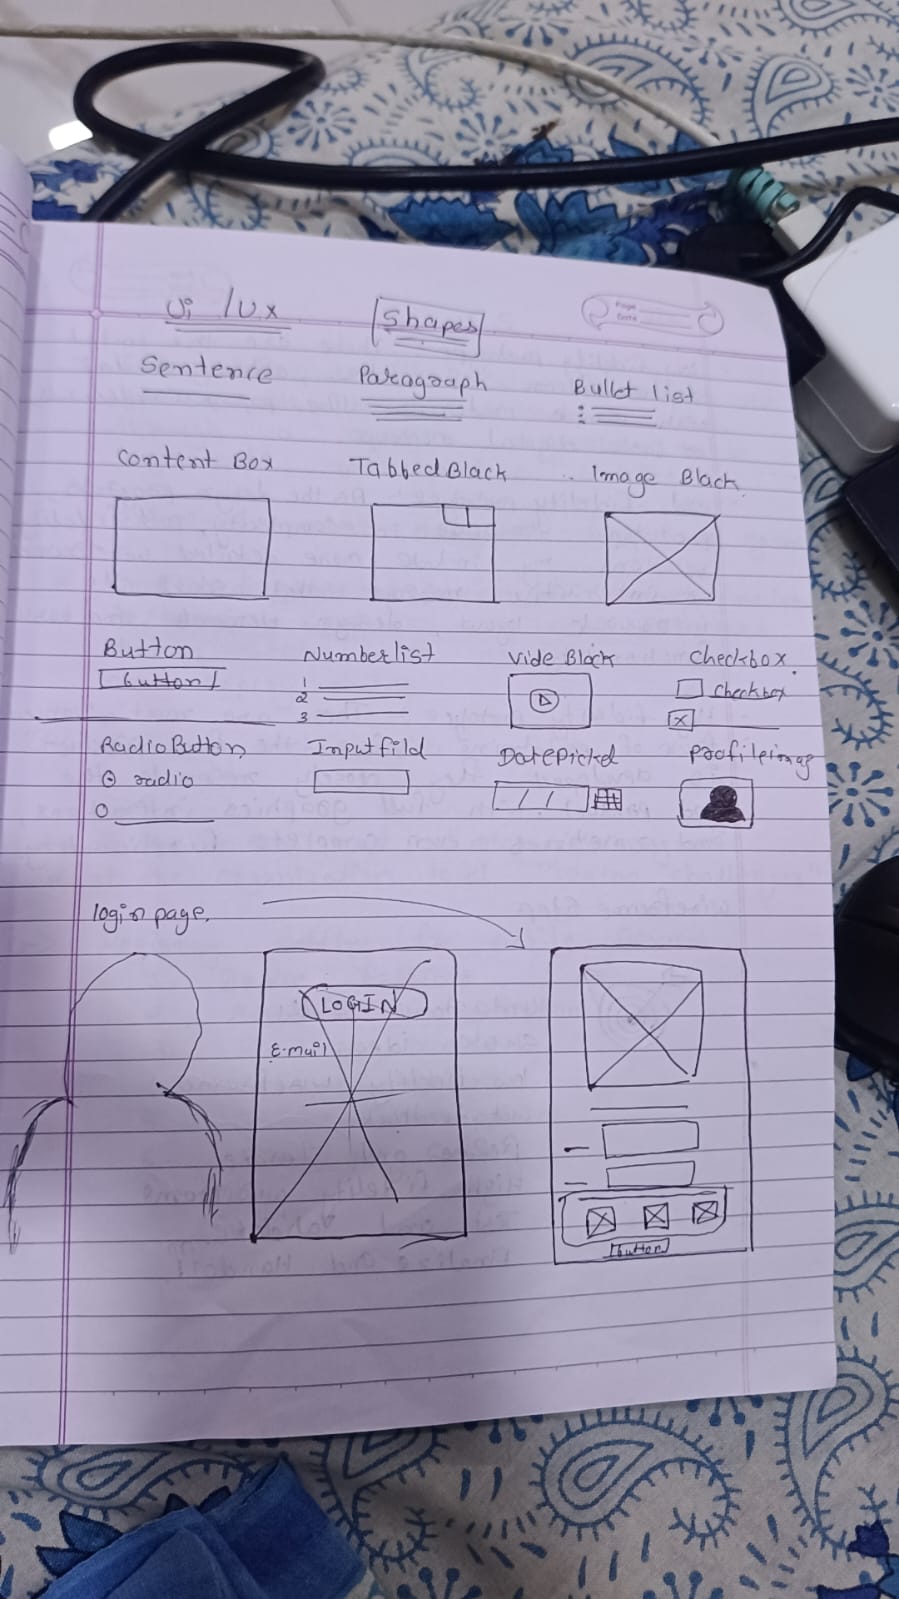 Ui / Ux
Shapes
Page
Date
Sentence Paragraph Bullet list
Content Box Tabbed Black Image Black
Button Numberlist Vide Block Checkbox
button 1 checkbox
2
3
Radio Button Input fild Date Picked Profile imag
radio
login page.
LOGIN
E-mail
button